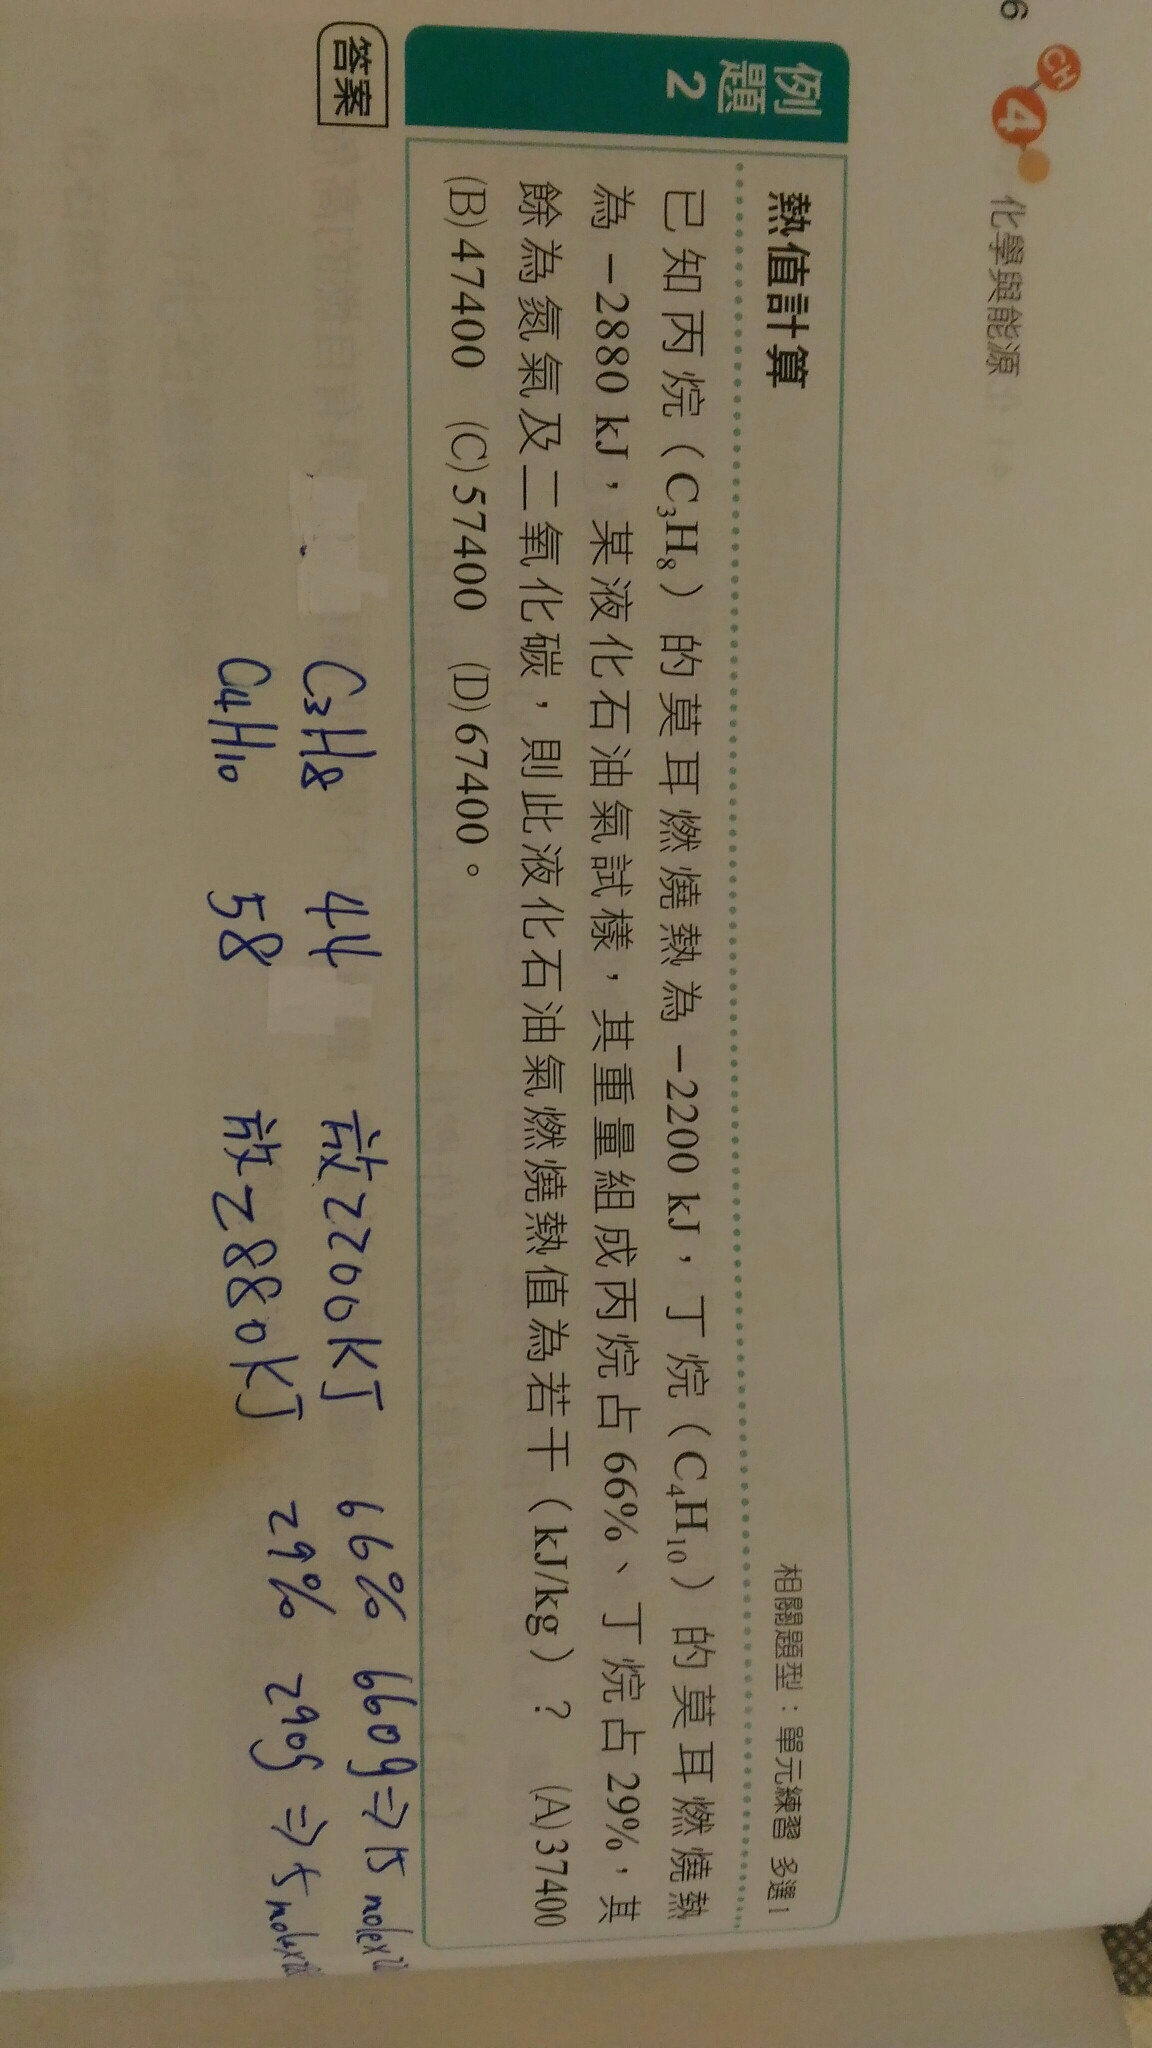 6
CH 4 化學與能源
例題 2
熱值計算
相關題型：單元練習 多選1
已知丙烷（C₃H₈）的莫耳燃燒熱為－2200 kJ，丁烷（C₄H₁₀）的莫耳燃燒熱
為－2880 kJ，某液化石油氣試樣，其重量組成丙烷占66%、丁烷占29%，其
餘為氮氣及二氧化碳，則此液化石油氣燃燒熱值為若干（kJ/kg）？ (A)37400
(B)47400 (C)57400 (D)67400。
答案
C3H8 44 放2200KJ 66% 660g⇒15 mole×22
C4H10 58 放2880KJ 29% 290g⇒5 mole×28